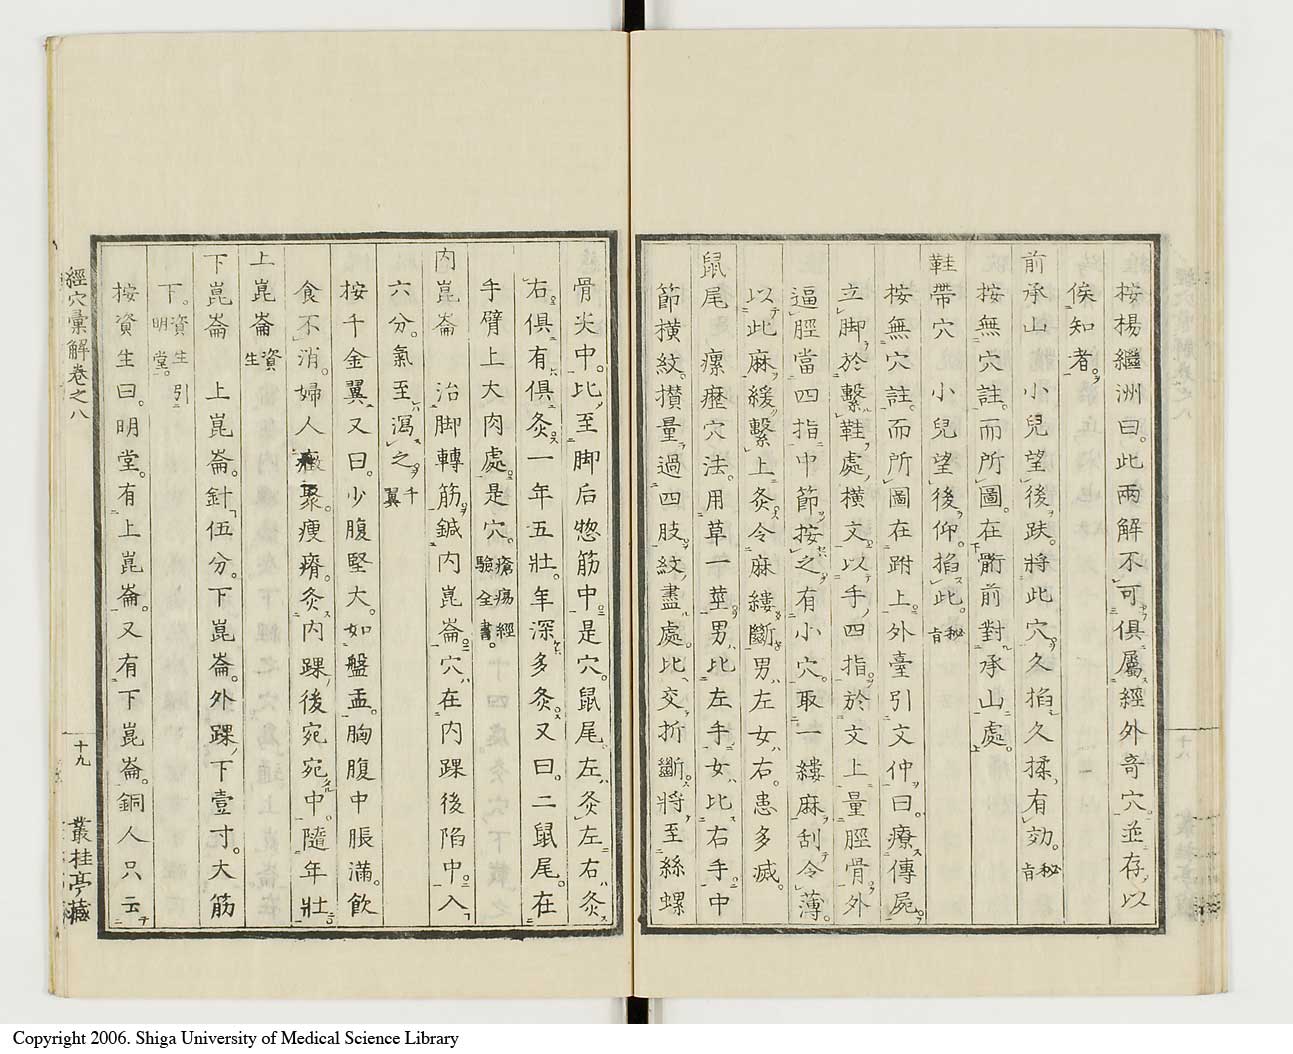 按楊繼洲曰此兩解不可俱屬經外奇穴並存以
俟知者
前承山小兒望後趺將此穴久掐久揉有効秘旨
按無穴註而所圖在骱前對承山處
鞋帶穴 小兒望後仰掐此秘旨
按無穴註而所圖在跗上外臺引文仲曰療傳屍
立脚於繫鞋處橫文以手四指於文上量脛骨外
逼脛當四指中節按之有小穴取一縷麻刮令薄
以此麻緩繫上灸令麻縷斷男左女右患多滅
鼠尾 瘰癧穴法用草一莖男比左手女比右手中
節橫紋攅量過四肢紋盡處比交折斷將至絲螺
骨尖中比至脚后惣筋中是穴鼠尾左灸左右灸
右俱有俱灸一年五壯年深多灸又曰二鼠尾在
手臂上大肉處是穴瘡瘍經驗全書
內崑崙 治脚轉筋鍼內崑崙穴在內踝後陷中入
六分氣至瀉之千翼
按千金翼又曰少腹堅大如盤盂胸腹中脹滿飲
食不消婦人癥聚瘦瘠灸內踝後宛宛中隨年壯
上崑崙資生
下崑崙 上崑崙針伍分下崑崙外踝下壹寸大筋
下資生引明堂
按資生曰明堂有上崑崙又有下崑崙銅人只云
經穴彙解卷之八
十九
叢桂亭藏